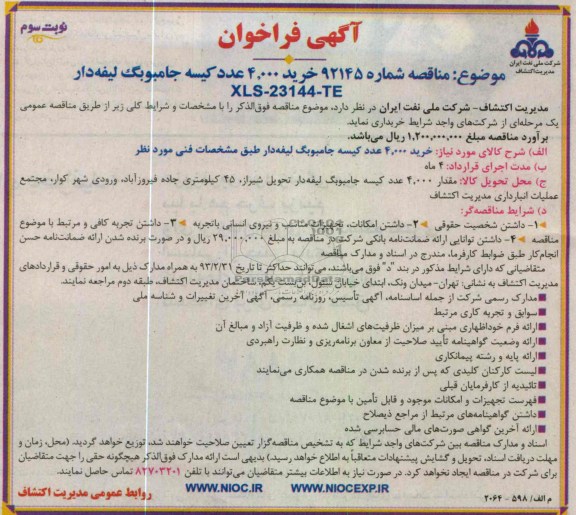 آگهی فراخوان
نوبت سوم
شرکت ملی نفت ایران
مدیریت اکتشاف
موضوع: مناقصه شماره ۹۲۱۴۵ خرید ۴,۰۰۰ عدد کیسه جامبوبگ لیفه‌دار
XLS-23144-TE
مدیریت اکتشاف- شرکت ملی نفت ایران در نظر دارد، موضوع مناقصه فوق‌الذکر را با مشخصات و شرایط کلی زیر از طریق مناقصه عمومی
یک مرحله‌ای از شرکت‌های واجد شرایط خریداری نماید.
برآورد مناقصه مبلغ ۱,۲۰۰,۰۰۰,۰۰۰ ریال می‌باشد.
الف) شرح کالای مورد نیاز: خرید ۴,۰۰۰ عدد کیسه جامبوبگ لیفه‌دار طبق مشخصات فنی مورد نظر
ب) مدت اجرای قرارداد: ۴ ماه
ج) محل تحویل کالا: مقدار ۴,۰۰۰ عدد کیسه جامبوبگ لیفه‌دار تحویل شیراز، ۴۵ کیلومتری جاده فیروزآباد، ورودی شهر کوار، مجتمع
عملیات انبارداری مدیریت اکتشاف
د) شرایط مناقصه‌گر:
۱- داشتن شخصیت حقوقی ۲- داشتن امکانات، تجهیزات مناسب و نیروی انسانی باتجربه ۳- داشتن تجربه کافی و مرتبط با موضوع
مناقصه ۴- داشتن توانایی ارائه ضمانت‌نامه بانکی شرکت در مناقصه به مبلغ ۲۹,۰۰۰,۰۰۰ ریال و در صورت برنده شدن ارائه ضمانت‌نامه حسن
انجام‌کار طبق ضوابط کارفرما، مندرج در اسناد و مدارک مناقصه
متقاضیانی که دارای شرایط مذکور در بند "د" فوق می‌باشند، می‌توانند حداکثر تا تاریخ ۹۳/۲/۳۱ به همراه مدارک ذیل به امور حقوقی و قراردادهای
مدیریت اکتشاف به نشانی: تهران- میدان ونک، ابتدای خیابان سئول، بن‌بست یکم، ساختمان مدیریت اکتشاف، طبقه دوم مراجعه نمایند.
■ مدارک رسمی شرکت از جمله اساسنامه، آگهی تأسیس، روزنامه رسمی، آگهی آخرین تغییرات و شناسه ملی
■ سوابق و تجربه کاری مرتبط
■ ارائه فرم خوداظهاری مبنی بر میزان ظرفیت‌های اشغال شده و ظرفیت آزاد و مبالغ آن
■ ارائه وضعیت گواهینامه تأیید صلاحیت از معاون برنامه‌ریزی و نظارت راهبردی
■ ارائه پایه و رشته پیمانکاری
■ لیست کارکنان کلیدی که پس از برنده شدن در مناقصه همکاری می‌نمایند
■ تائیدیه از کارفرمایان قبلی
■ فهرست تجهیزات و امکانات موجود و قابل تأمین با موضوع مناقصه
■ داشتن گواهینامه‌های مرتبط از مراجع ذیصلاح
■ ارائه آخرین گواهی صورت‌های مالی حسابرسی شده
اسناد و مدارک مناقصه بین شرکت‌های واجد شرایط که به تشخیص مناقصه‌گزار تعیین صلاحیت خواهند شد، توزیع خواهد گردید. (محل، زمان و
مهلت دریافت اسناد، تحویل و گشایش پیشنهادات متعاقباً به اطلاع خواهد رسید.) بدیهی است ارائه مدارک فوق‌الذکر هیچگونه حقی را جهت متقاضیان
برای شرکت در مناقصه ایجاد نخواهد کرد. در صورت نیاز به اطلاعات بیشتر متقاضیان می‌توانند با تلفن ۸۲۷۰۳۲۰۱ تماس حاصل نمایند.
WWW.NIOC.IR WWW.NIOCEXP.IR
روابط عمومی مدیریت اکتشاف
م الف/ ۵۹۸ - ۲۰۶۴